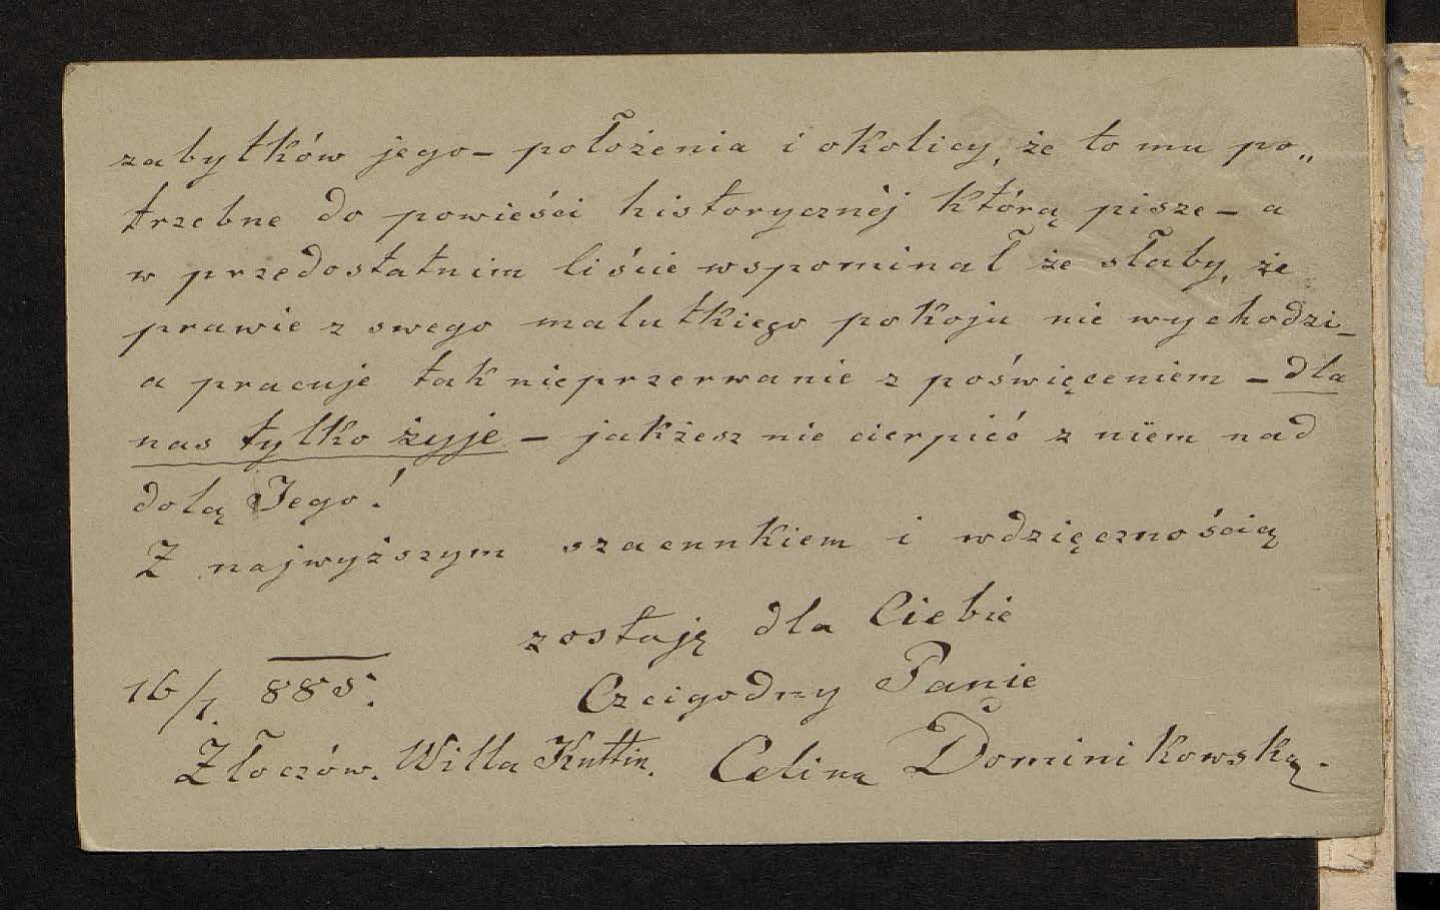 zabytków jego – położenia i okolicy, że to mu po„
trzebne do powieści historycznéj którą pisze – a
w przedostatnim liście wspominał że słaby, że
prawie z swego malutkiego pokoju nie wychodzi –
a pracuje tak nieprzerwanie z poświęceniem – dla
nas tylko żyje – jakżesz nie cierpieć z niem nad
dolą Jego!
Z najwyższym szacunkiem i wdzięcznością
zostaję dla Ciebie
16/1. 885. Czcigodny Panie
Złoczów. Willa Celina Dominikowska.